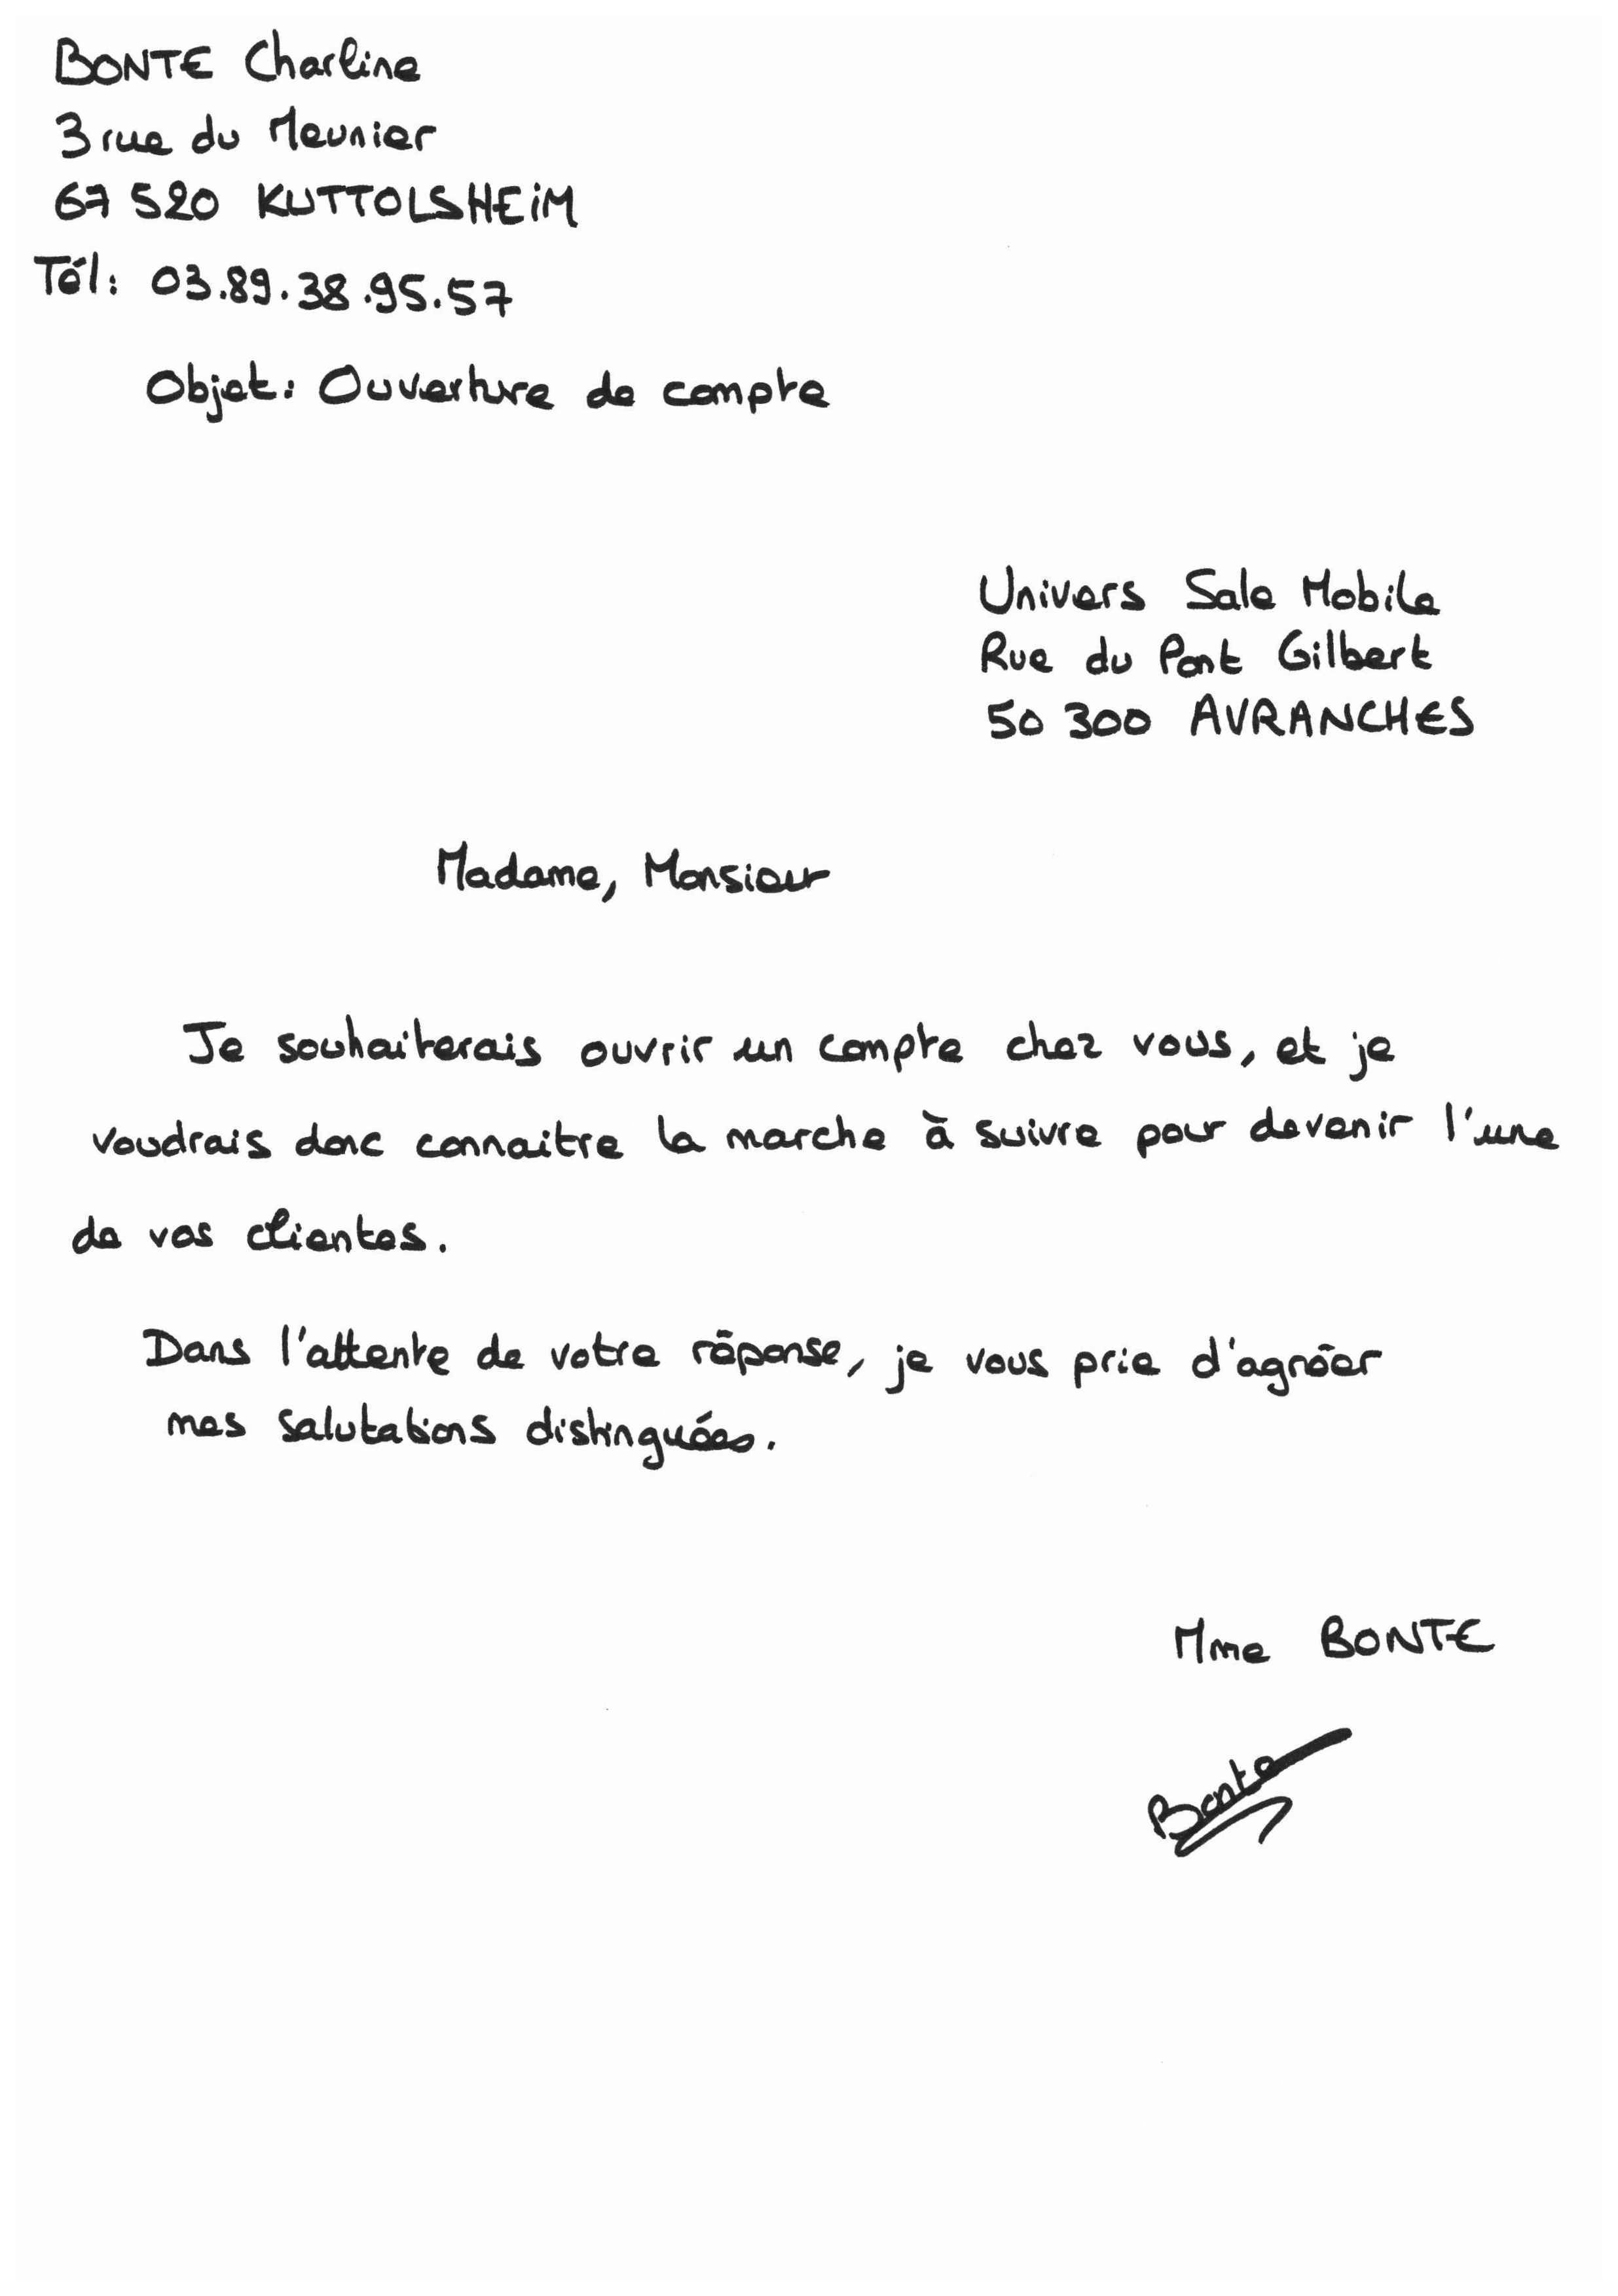 BONTE Charline
3 rue du Meunier
67 520 KUTTOLSHEIM
Tél: 03.89.38.95.57
Objet: Ouverture de compte
Univers Sale Mobile
Rue du Pont Gilbert
50 300 AVRANCHES
Madame, Monsieur
Je souhaiterais ouvrir un compte chez vous, et je
voudrais donc connaitre la marche à suivre pour devenir l'une
de vos clientes.
Dans l'attente de votre réponse, je vous prie d'agréer
mes salutations distinguées.
Mme BONTE
Bonte